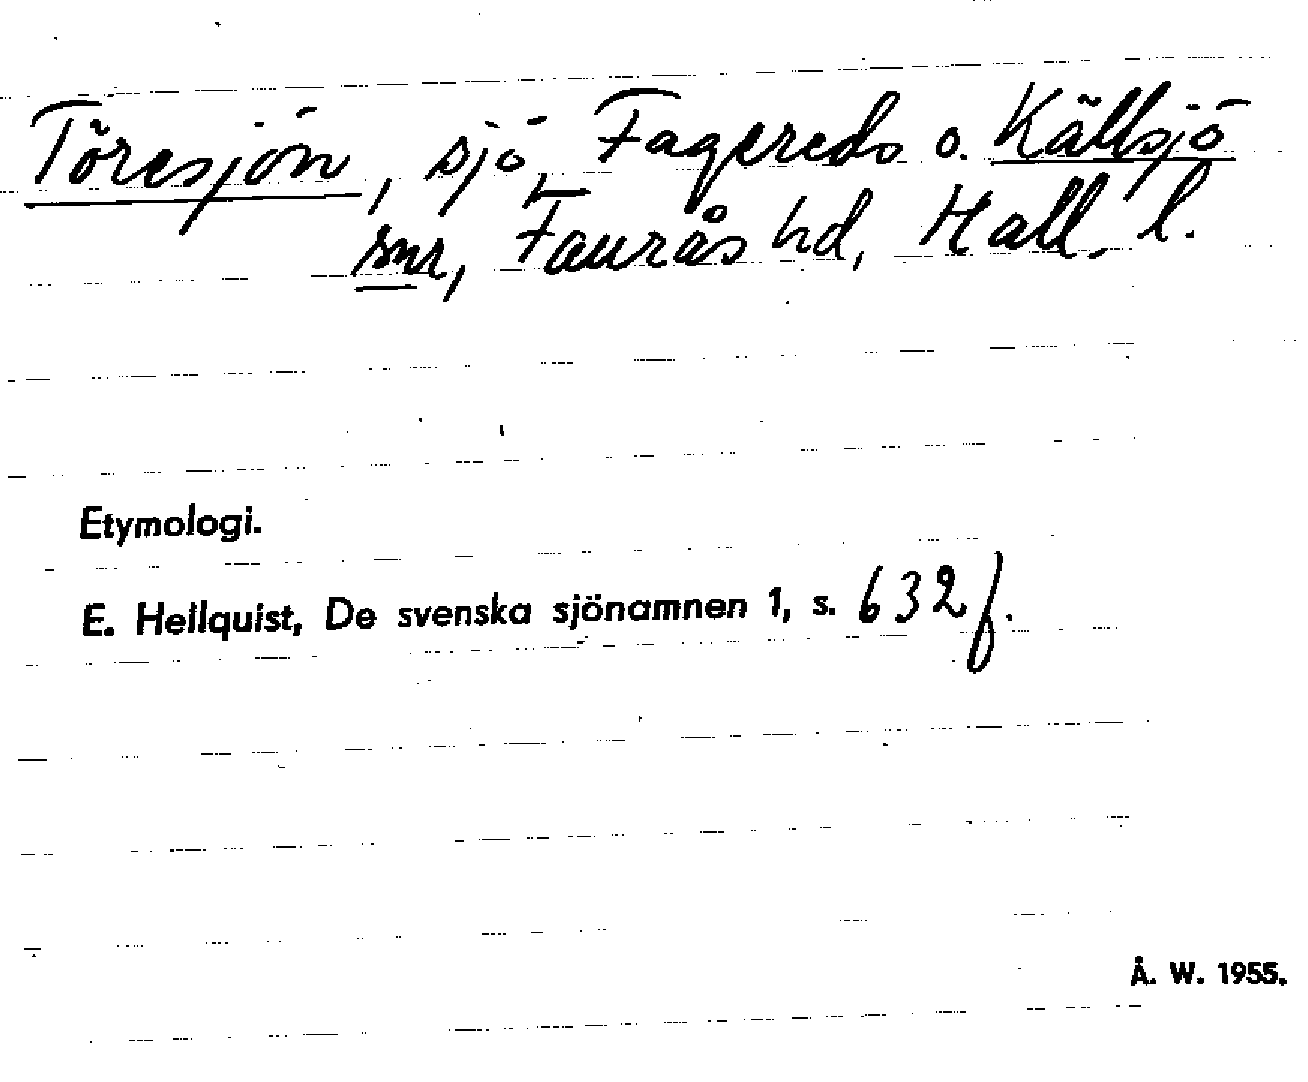 Töresjön, sjö, Fagereds o. Källsjö
snr, Faurås hd, Hall. l.
Etymologi.
E. Hellquist, De svenska sjönamnen 1, s. 632 f.
Å. W. 1955.